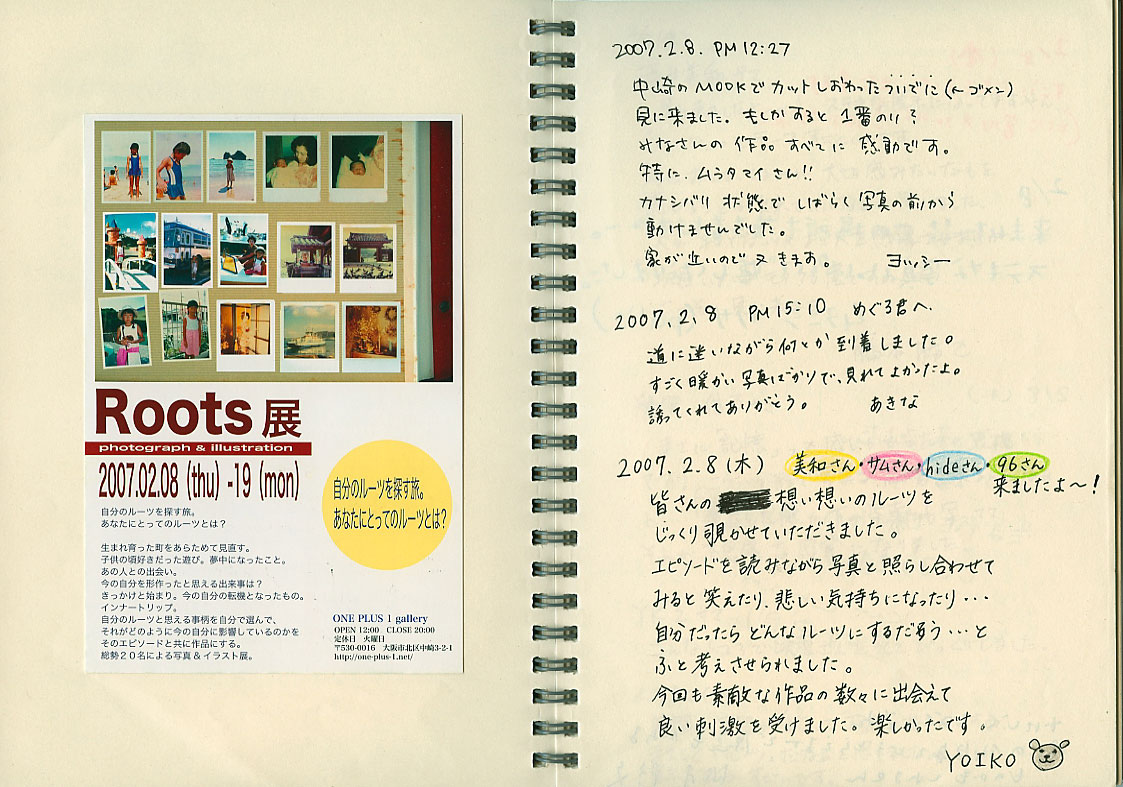 Roots展
photograph & illustration
2007.02.08 (thu) -19 (mon)
自分のルーツを探す旅。
あなたにとってのルーツとは?
生まれ育った町をあらためて見直す。
子供の頃好きだった遊び。夢中になったこと。
あの人との出会い。
今の自分を形作ったと思える出来事は?
きっかけと始まり。今の自分の転機となったもの。
インナートリップ。
自分のルーツと思える事柄を自分で選んで、
それがどのように今の自分に影響しているのかを
そのエピソードと共に作品にする。
総勢20名による写真&イラスト展。
自分のルーツを探す旅。
あなたにとってのルーツとは?
ONE PLUS 1 gallery
OPEN 12:00 CLOSE 20:00
定休日 火曜日
〒530-0016 大阪市北区中崎3-2-1
http://one-plus-1.net/
2007.2.8. PM 12:27
中崎のMOOKでカットしおわったついでに(ゴメン)
見に来ました。もしかすると1番のり?
みなさんの作品すべてに感動です。
特に、ムラタマイさん!!
カナシバリ状態でしばらく写真の前から
動けませんでした。
家が近いので又きます。 ヨッシー
2007.2.8 PM15:10 めぐろ君へ.
道に迷いながら何とか到着しました。
すごく暖かい写真ばかりで、見れてよかったよ。
誘ってくれてありがとう。 あきな
2007.2.8(木) 美和さん・サムさん・hideさん・96さん
来ましたよ〜!
皆さんの 想い想いのルーツを
じっくり覗かせていただきました。
エピソードを読みながら写真と照らし合わせて
みると笑えたり、悲しい気持ちになったり・・・
自分だったらどんなルーツにするだろう・・・と
ふと考えさせられました。
今回も素敵な作品の数々に出会えて
良い刺激を受けました。楽しかったです。
YOIKO